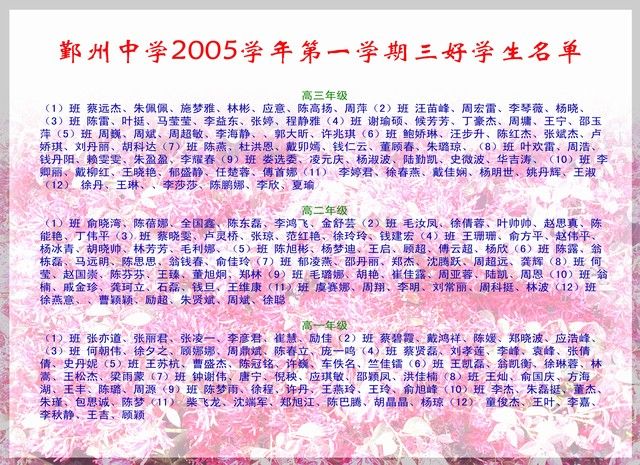 鄞州中学2005学年第一学期三好学生名单
高三年级
（1）班 蔡远杰、朱佩佩、施梦雅、林彬、应意、陈高扬、周萍（2）班 汪苗峰、周宏雷、李琴薇、杨晓、
（3）班 陈雷、叶挺、马莹莹、李益东、张婷、程静雅（4）班 谢瑜硕、候芳芳、丁豪杰、周墉、王宁、邵玉
萍（5）班 周巍、周斌、周超敏、李海静、、郭大昕、许兆琪（6）班 鲍娇琳、汪步升、陈红杰、张斌杰、卢
娇琪、刘丹丽、胡科达（7）班 陈燕、杜洪恩、戴卯嫣、钱仁云、董顾春、朱璐琼、（8）班 叶欢雷、周浩、
钱丹阳、赖雯雯、朱盈盈、李耀春（9）班 娄选委、凌元庆、杨淑波、陆勤凯、史微波、华吉涛、（10）班 李
卿丽、戴柳红、王晓艳、郁盛静、任楚蓉、傅首娜（11） 李婷君、徐春燕、戴佳娴、杨明世、姚丹辉、王淑
（12） 徐丹、王琳、、李莎莎、陈鹏娜、李欣、夏瑜
高二年级
（1）班 俞晓湾、陈蓓娜、全国鑫、陈东磊、李鸿飞、金舒芸（2）班 毛汝凤、徐倩蓉、叶帅帅、赵思真、陈
能艳、丁伟平（3）班 蔡晓雯、卢灵桥、张琼、范红艳、徐玲玲、钱建宏（4）班 王珊珊、俞方平、赵伟平、
杨冰青、胡晓帅、林芳芳、毛利娜、（5）班 陈旭彬、杨梦迪、王启、顾超、傅云超、杨欣（6）班 陈露、翁
栋磊、马远明、陈思思、翁钱春、俞佳玲（7）班 郁凌燕、邵丹丽、郑杰、沈腾跃、周超远、龚辉（8）班 何
莹、赵国崇、陈芬芬、王臻、董旭炯、郑林（9）班 毛璐娜、胡艳、崔佳露、周亚蓉、陆凯、周恩（10）班 翁
楠、戚金珍、龚珂立、石磊、钱旦、王维康（11）班 虞赛娜、周翔、李明、刘常丽、周科挺、林波（12）班
徐燕意、、曹颖颖、励超、朱贤斌、周斌、徐聪
高一年级
（1）班 张亦道、张丽君、张凌一、李彦君、崔慧、励佳（2）班 蔡碧霞、戴鸿祥、陈媛、郑晓波、应浩峰、
（3）班 何朝伟、徐夕之、顾娜娜、周鼎斌、陈春立、庞一鸣（4）班 蔡贤磊、刘孝莲、李峰、袁峰、张倩
倩、史丹妮（5）班 王苏杭、曹盛杰、陈冠铭、许巍、车佚名、竺佳镭（6）班 王凯磊、翁凯衡、徐琳蓉、林
嵩、王松杰、梁雨蒙（7）班 钟谢伟、唐宁、倪秧、应琪敏、邵颖凤、洪佳楠（8）班 王灿、俞国庆、方海
湖、王丰、陈璐、周源（9）班 陈梦雨、徐程、许丹、王燕玲、王玲、俞旭峰（10）班 李杰、朱磊挺、董杰、
朱瑾、包思诚、陈梦（11） 柴飞龙、沈端军、郑旭江、陈巴腾、胡晶晶、杨琼（12） 童俊杰、王叶、李嘉、
李秋静、王吉、顾颖